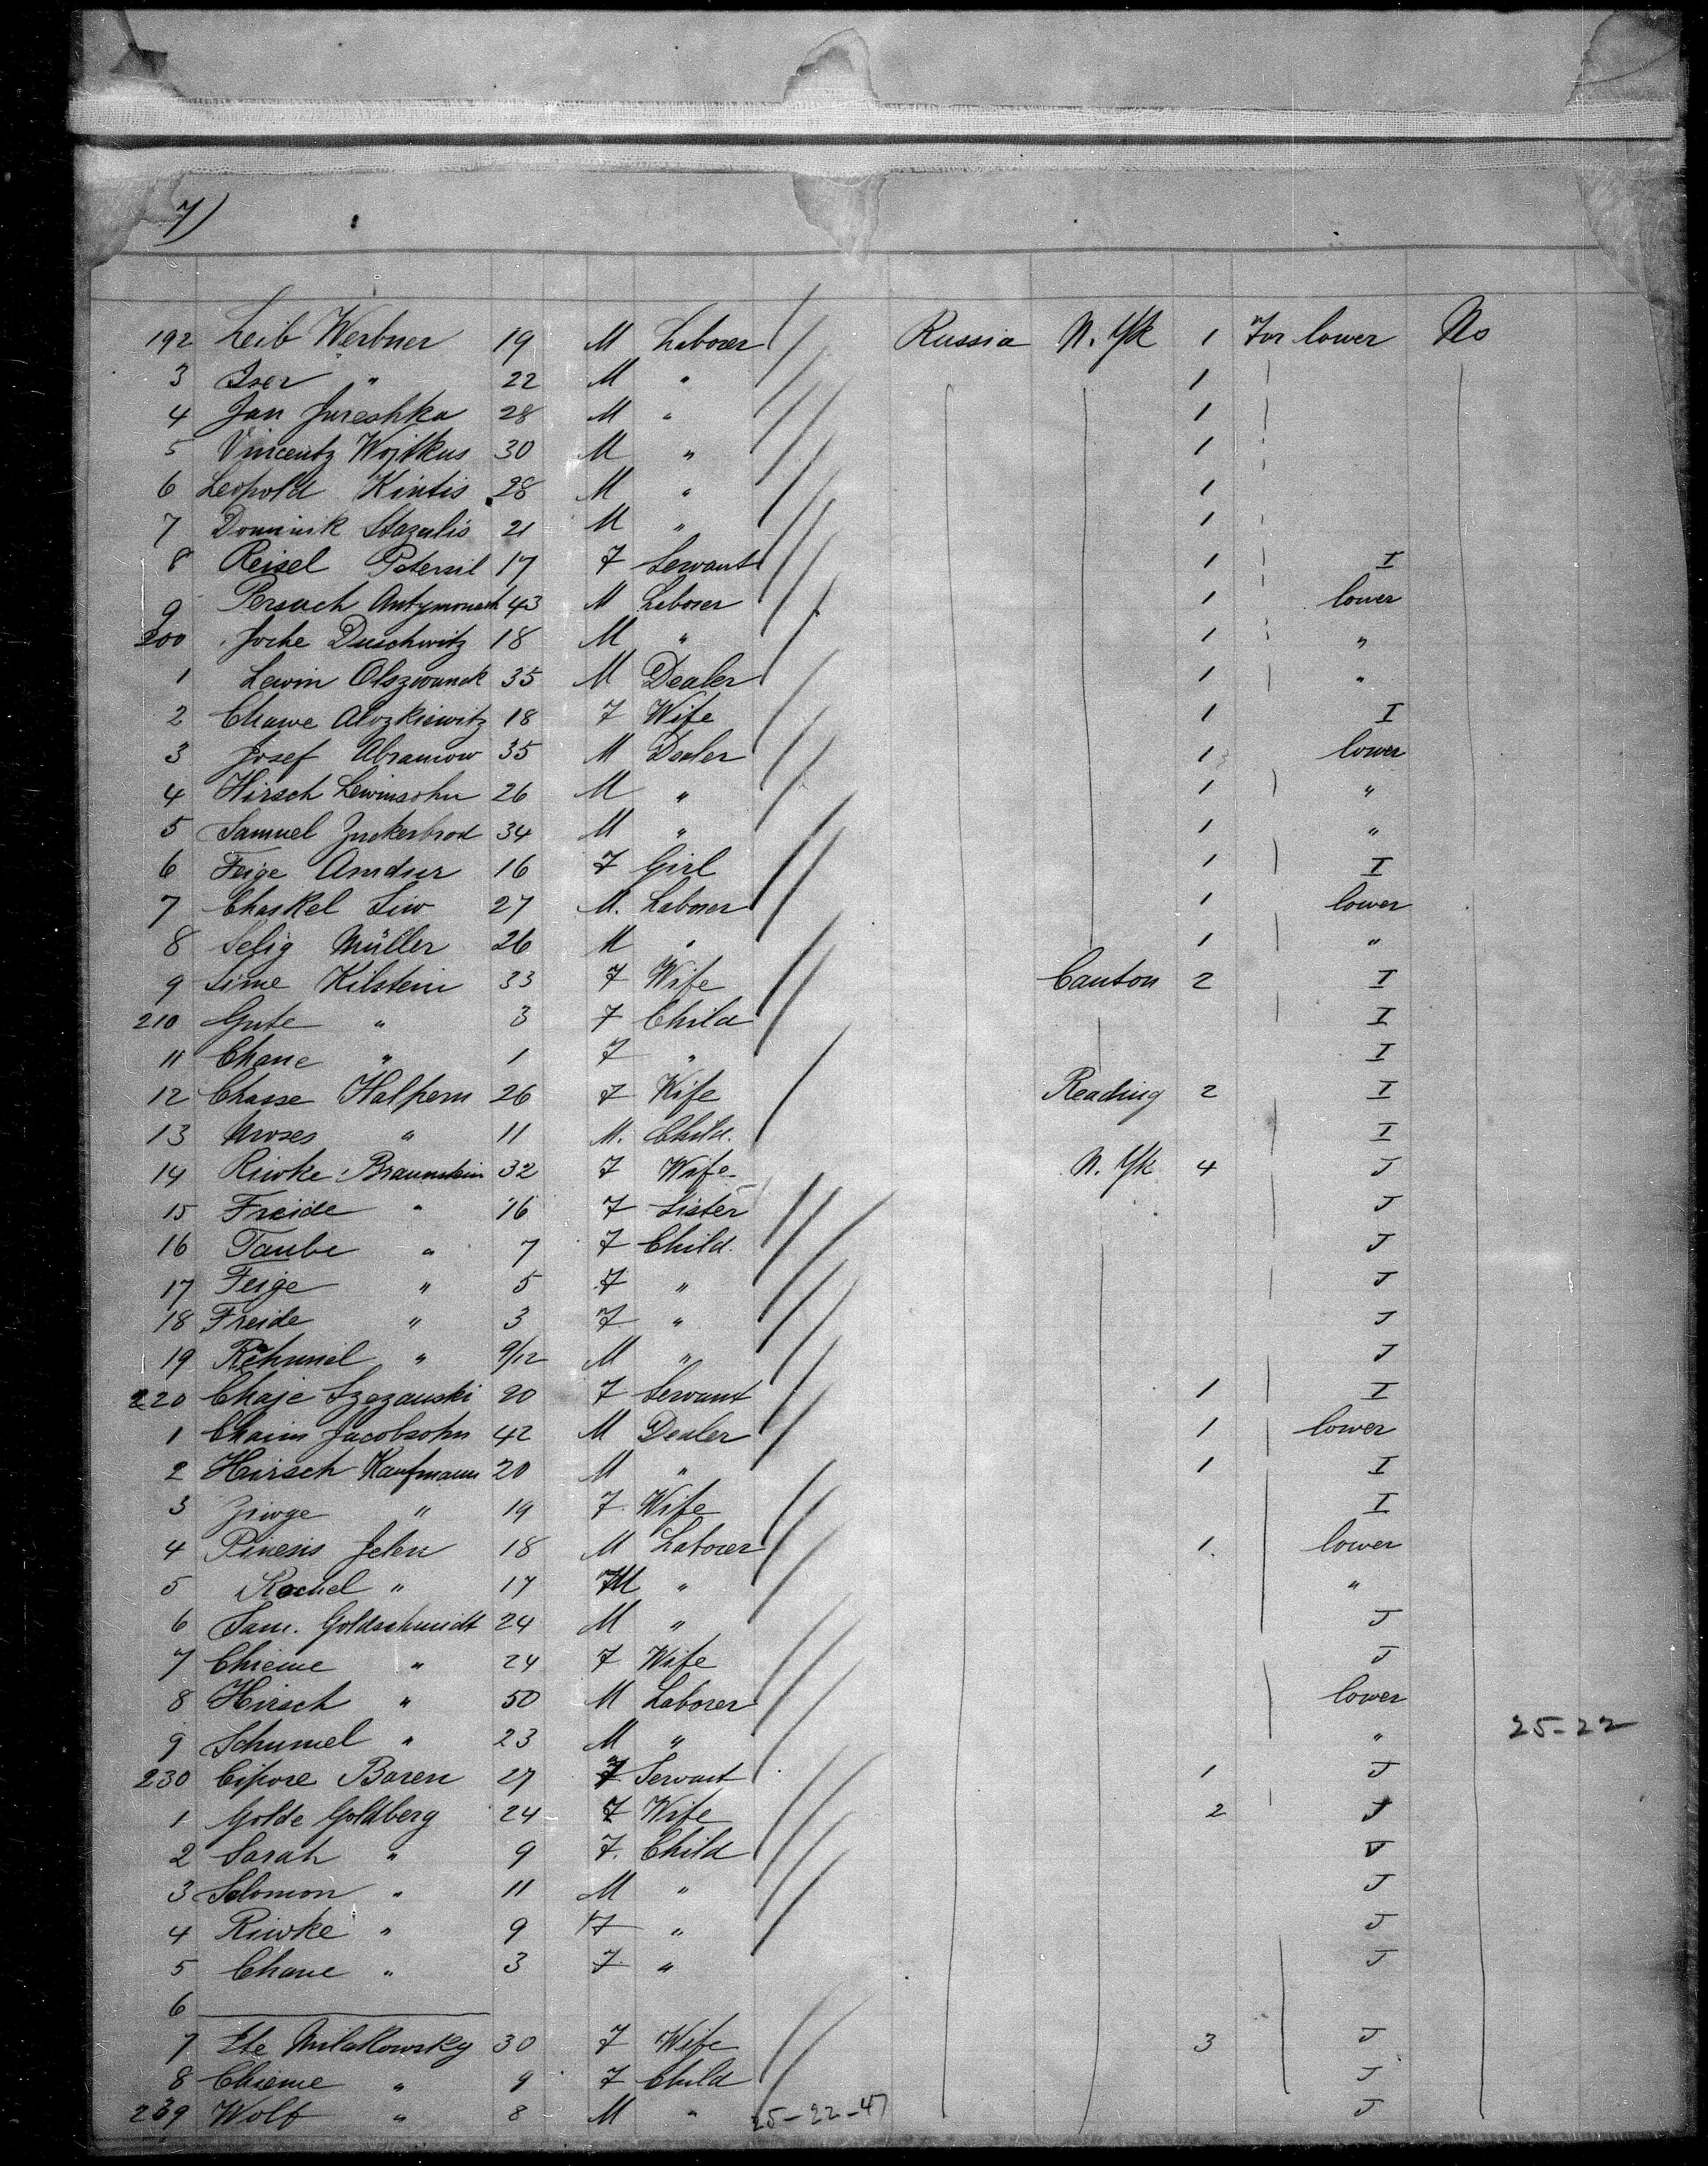 7)
192 Leib Werbner 19 M Laborer Russia N. Yk 1 For lower No
3 Iser " 22 M " 1
4 Jan Jureshka 28 M " 1
5 Vincentz Wojtkus 30 M " 1
6 Leopold Kintis 28 M " 1
7 Dominik Stazulis 21 M " 1
8 Reisel Petersil 17 F Servant 1 I
9 Persach 43 M Laborer 1 lower
200 Joche Duschwitz 18 M " 1 "
1 Lewin 35 M Dealer 1 "
2 Chawe 18 F Wife 1 I
3 Josef Abramow 35 M Dealer 1 lower
4 Hirsch Lewinsohn 26 M " 1 "
5 Samuel Zuckerbrod 34 M " 1 "
6 Feige Amdur 16 F Girl 1 I
7 Chaskel Liw 27 M. Laborer 1 lower
8 Selig Müller 26 M " 1 "
9 Sime Kilstein 33 F Wife Canton 2 I
210 Gute " 3 F Child I
11 Chane " 1 F " I
12 Chasse Halpern 26 F Wife Reading 2 I
13 Moses " 11 M. Child. I
14 Riwke Braunstein 32 F Wife N. Yk 4 J
15 Freide " 16 F Sister J
16 Taube " 7 F Child. J
17 Feige " 5 F " J
18 Freide " 3 F " J
19 " 9/12 M " J
220 Chaje Szezanski 20 F Servant 1 I
1 Chaim Jacobsohn 42 M Dealer 1 lower
2 Hirsch Kaufmann 20 M " 1 I
3 " 19 F Wife I
4 Pinesis Jelen 18 M Laborer 1 lower
5 Rochel " 17 M " "
6 Sam. Goldschmidt 24 M " J
7 Chieme " 24 F Wife J
8 Hirsch " 50 M Laborer lower
9 Schumel " 23 M " " 25-22
230 Cipore Baren 27 F Servant 1 J
1 Golde Goldberg 24 F Wife 2 J
2 Sarah " 9 F. Child J
3 Solomon " 11 M " J
4 Riwke " 9 F " J
5 Chane " 3 F " J
6
7 Ete Milatkowsky 30 F Wife 3 J
8 Chieme " 9 F Child J
239 Wolf " 8 M " 25-22-47 J